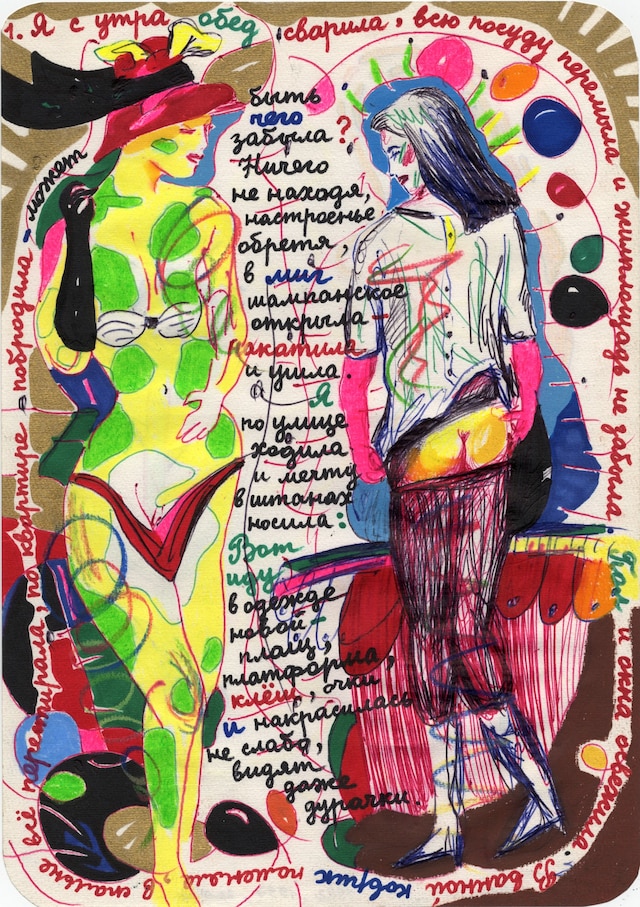 1. Я с утра обед сварила, всю посуду перемыла
и жилплощадь не забыла. Пол и окна освежила.
В ванной коврик поменяла, в спальне
всё перетирала, по квартире – побродила – может
быть
чего
забыла?
Ничего
не находя,
настроенье
обретя,
в миг
шампанское
открыла –
накатила
и ушла
Я
по улице
ходила
и мечту
в штанах
носила:
Вот
иду
в одежде
новой –
плащ,
платформа,
клёш, очки
и накрасилась
не слабо,
видят
даже
дурачки.